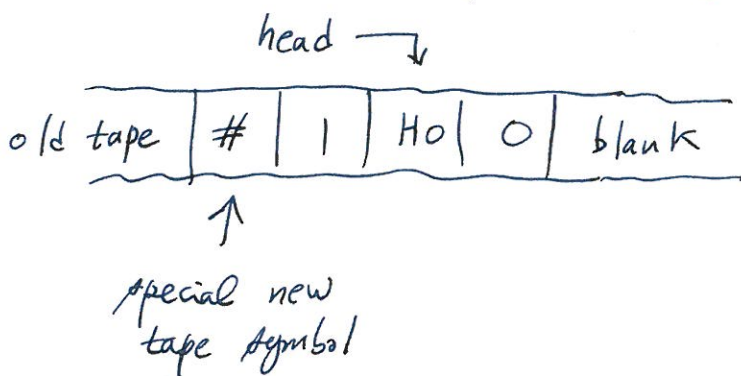 head
old tape # 1 H0 0 blank
special new
tape symbol